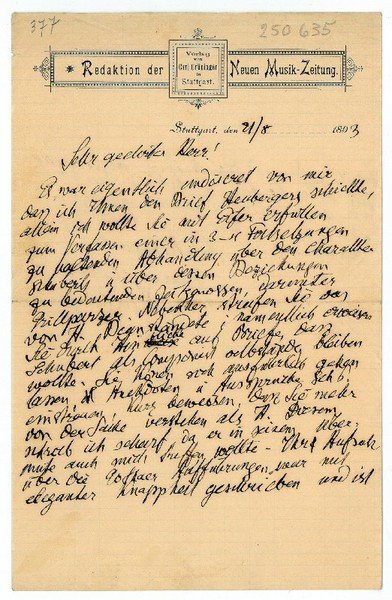 377
250 635
Verlag
von
Carl Grüninger
in
Stuttgart.
Redaktion der Neuen Musik-Zeitung.
Stuttgart, den 21/8 1893
Sehr geehrter Herr!
Es war eigentlich indiscret von mir
daß ich Ihnen den Brief Heubergers schickte,
allein ich wollte Sie mit Eifer erfüllen
zum Verfassen einer in 3-4 Fortsetzungen
zu Abhandlung über den Charakter
Schuberts u über dessen Beziehungen
zu bedeutenden Zeitgenossen, darunter
Grillparzer. Nebenher streifen Sie das
von H. namentlich
Sie durch auf Briefe, daß
Schubert als Componist selbständig bleiben
wollte. Sie können sich ausführlich gehen
lassen Anekdoten u Aussprüche Sch's
einstreuen; kurz beweisen, daß Sie mehr
von der Sache verstehen als H. Diesem
schrieb ich scharf, da er in seinem Über
mute auch mich treffen wollte. Ihr Aufsatz
über die Gothaer Aufführungen war mit
eleganter Knappheit geschrieben und ist